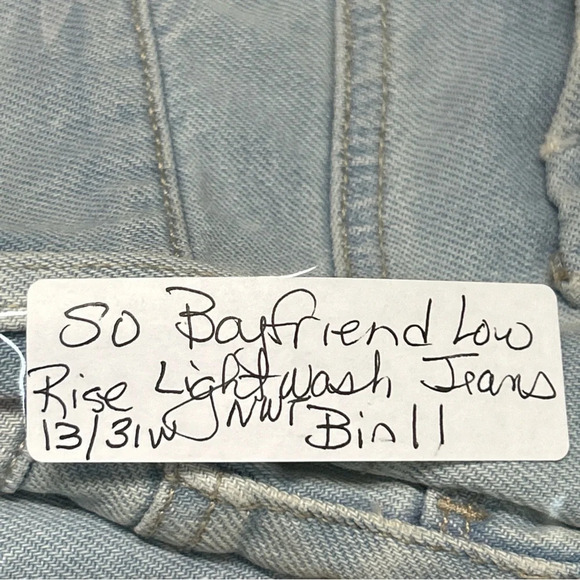 SO Boyfriend Low
Rise Lightwash Jeans
13/31W NWT Bin 11